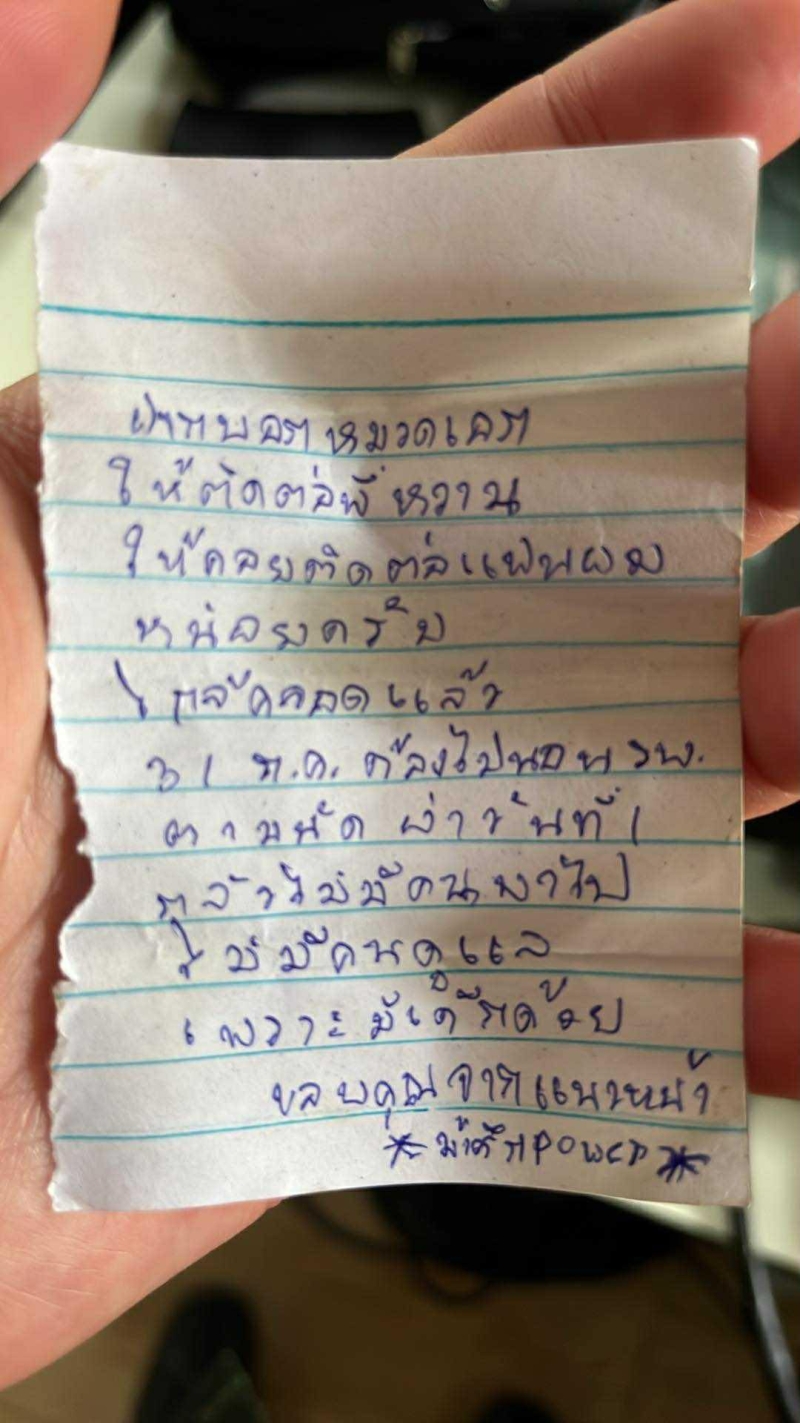 ฝากบอกหมวดเอก
ให้ติดต่อพี่หวาน
ให้คอยติดต่อแฟนผม
หน่อยครับ
ใกล้คลอดแล้ว
31 ก.ค. ต้องไปนอน รพ.
ตามนัด ผ่าวันที่ 1
กลัวไม่มีคนพาไป
ไม่มีคนดูแล
เพราะมีเด็กด้วย
ขอบคุณจากแนวหน้า
POWER